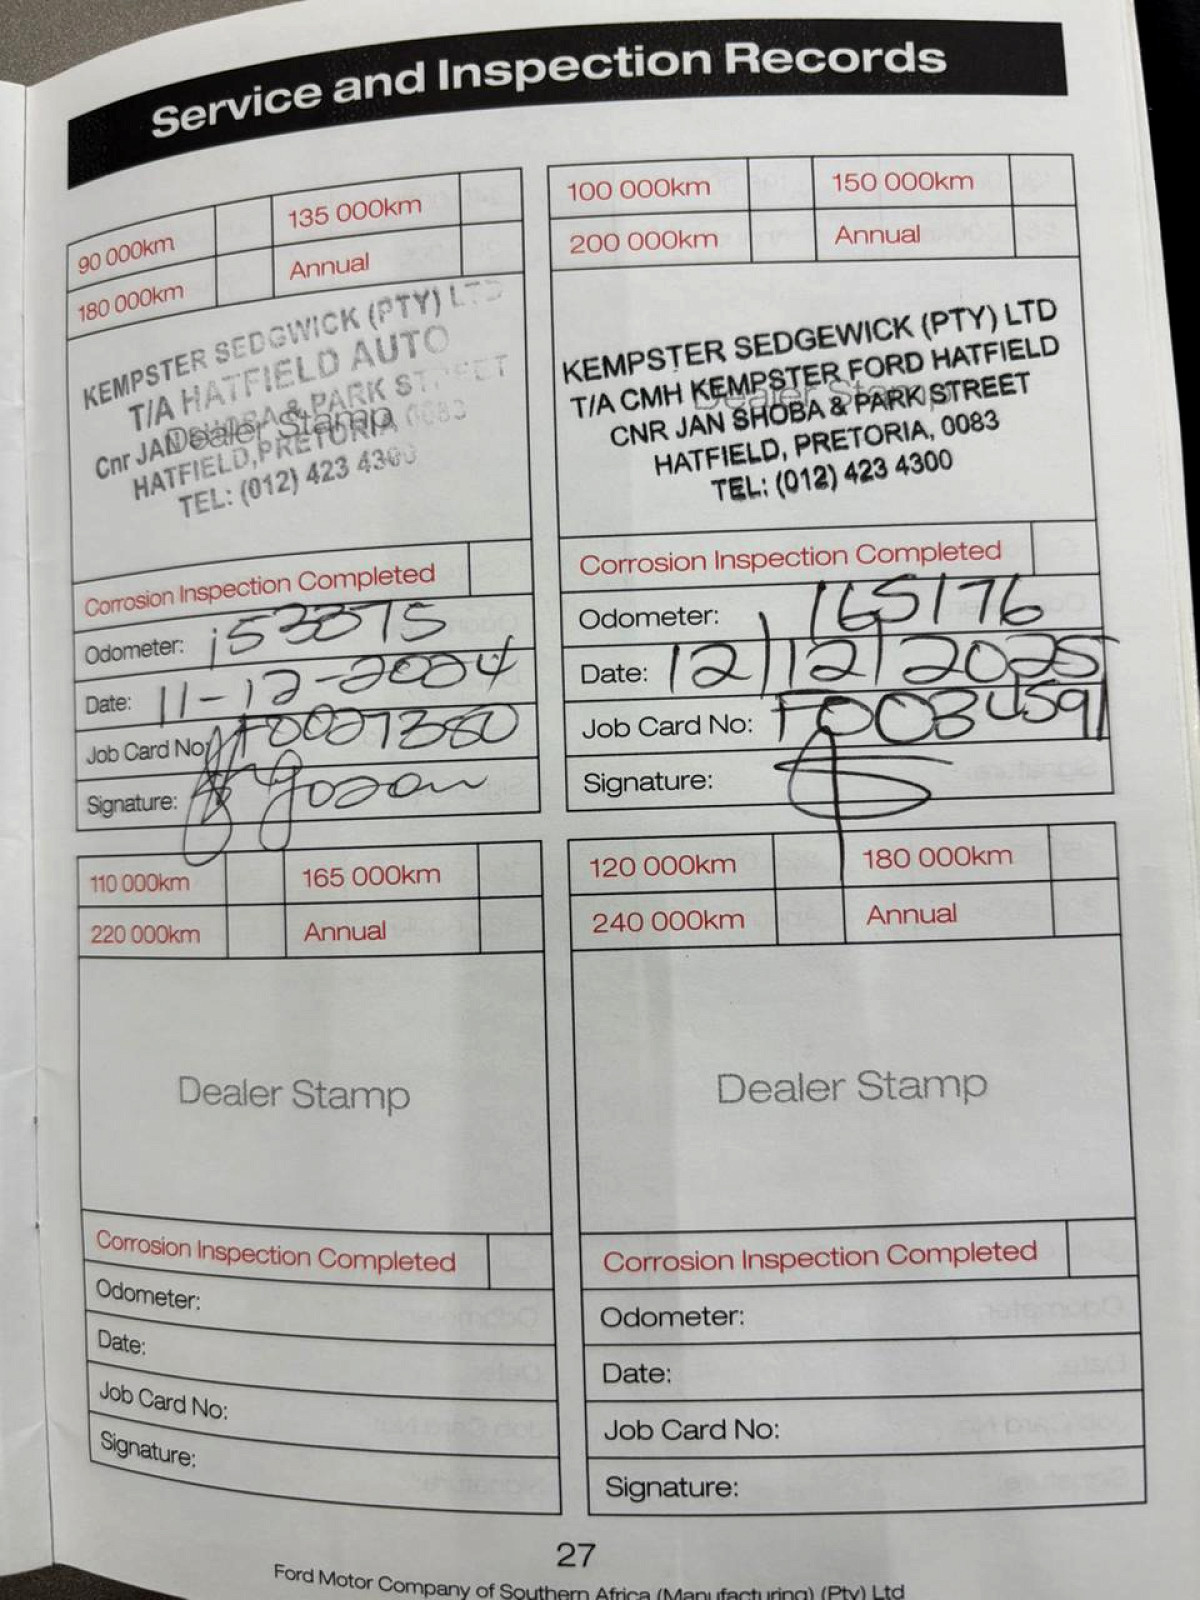 Service and Inspection Records
90 000km
135 000km
180 000km
Annual
KEMPSTER SEDGWICK (PTY) LTD
T/A HATFIELD AUTO
Cnr JAN SHOBA & PARK STREET
Dealer Stamp
HATFIELD, PRETORIA 0083
TEL: (012) 423 4300
Corrosion Inspection Completed
Odometer: 153375
Date: 11-12-2024
Job Card No: F0027380
Signature:
100 000km
150 000km
200 000km
Annual
KEMPSTER SEDGEWICK (PTY) LTD
T/A CMH KEMPSTER FORD HATFIELD
Dealer Stamp
CNR JAN SHOBA & PARK STREET
HATFIELD, PRETORIA, 0083
TEL: (012) 423 4300
Corrosion Inspection Completed
Odometer: 165176
Date: 12/12/2025
Job Card No: F0034591
Signature:
110 000km
165 000km
220 000km
Annual
Dealer Stamp
Corrosion Inspection Completed
Odometer:
Date:
Job Card No:
Signature:
120 000km
180 000km
240 000km
Annual
Dealer Stamp
Corrosion Inspection Completed
Odometer:
Date:
Job Card No:
Signature:
27
Ford Motor Company of Southern Africa (Manufacturing) (Pty) Ltd